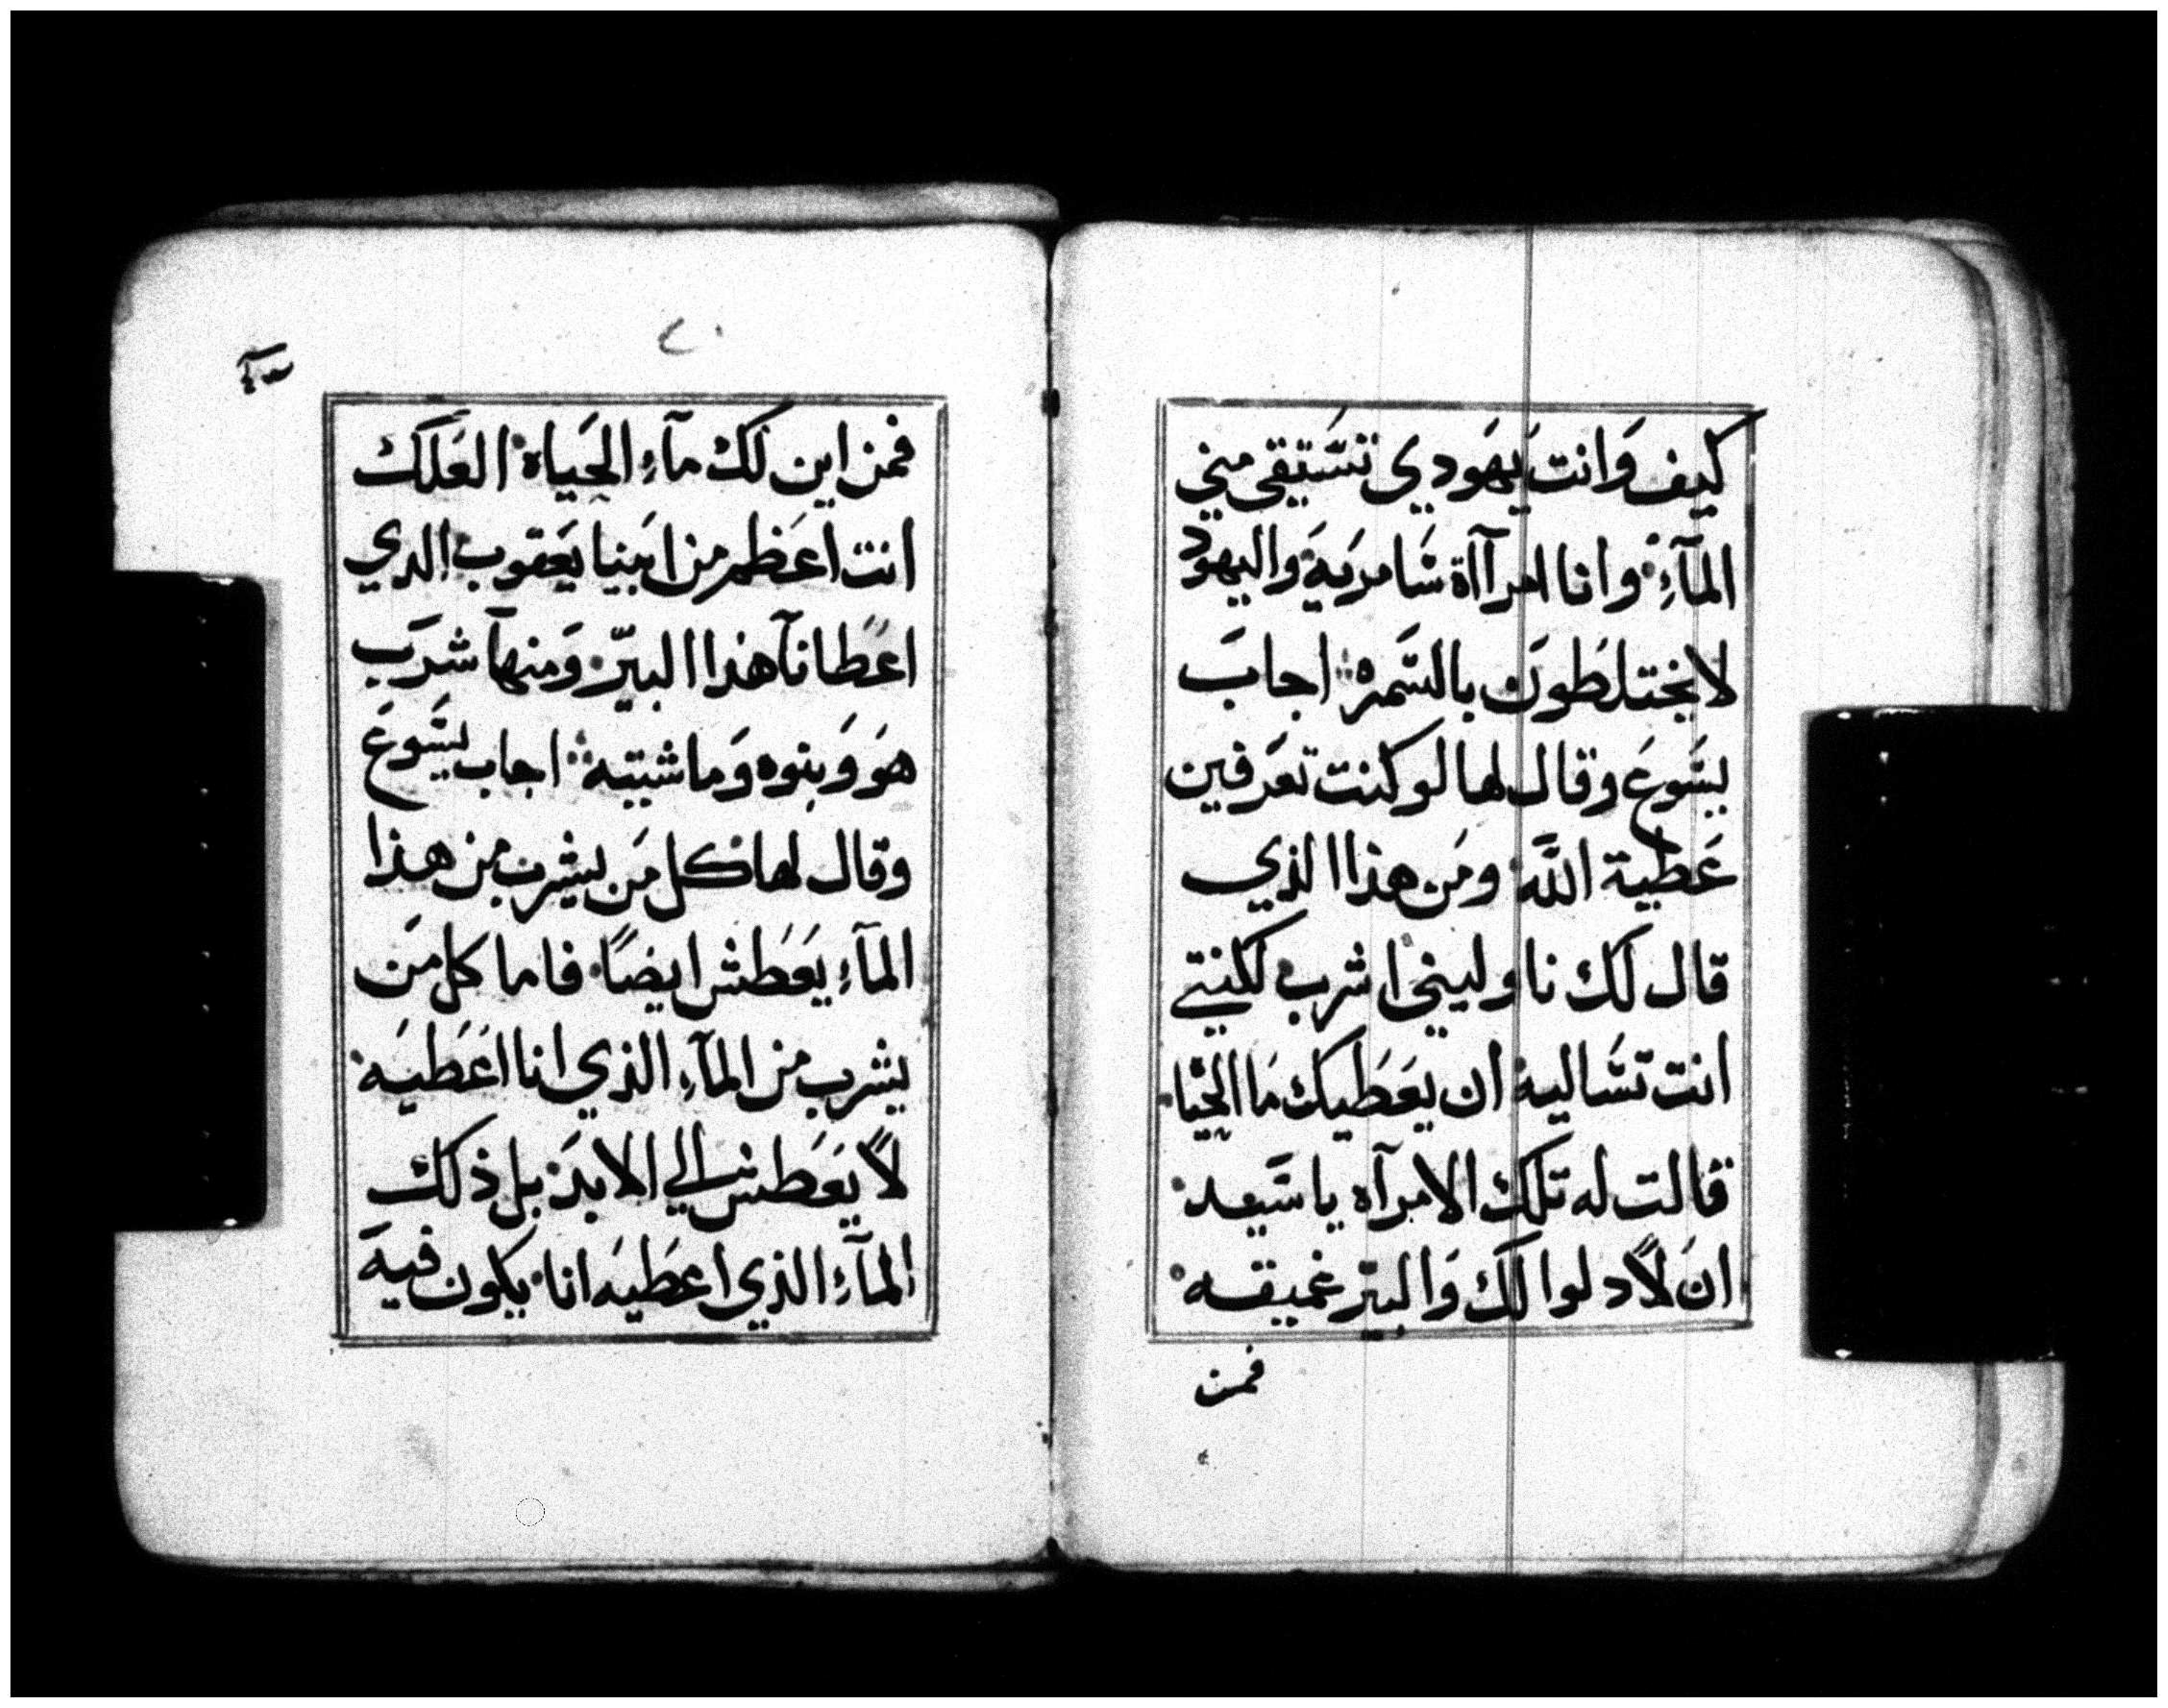 كيف وَانت يَهَودي تسَّتِقي مني
المآءِ وانا امرآاة سَامريَةَ واليهود
لا يختلطَونَ بالسَّمرة اجابَ
يسَّوعَ وقال لها لو كنت تعرَفين
عَطية اللَّه ومَن هذا الذي
قال لَك ناوليني اشرب لكنتي
انت تسَّاليه ان يعَطَيك مَا الحَيَاه
قالت له تلك الامرآه يا سَّيد
انَ لاًدلوا لَك وَالبيّر غميقه
فمن
٧٠
فمن اين لَك مآءِ الحَياة العَلَك
انت اعَظم من ابَينا يَعَقوب الدي
اعَطانآ هذا البيّر وَمنهآ شرَب
هوَ وَبنوه وَماشيته اجاب يسَّوعَ
وقال لها كل مَن يشرب من هذا
المآءِ يَعَطَش ايضًا فاما كل مَن
يشرب من المآءِ الذي انا اعَطَيَه
لاً يَعَطَش الي الابَد بل ذلك
المآءِ الذي اعطَيَه انا يكون فيهَ